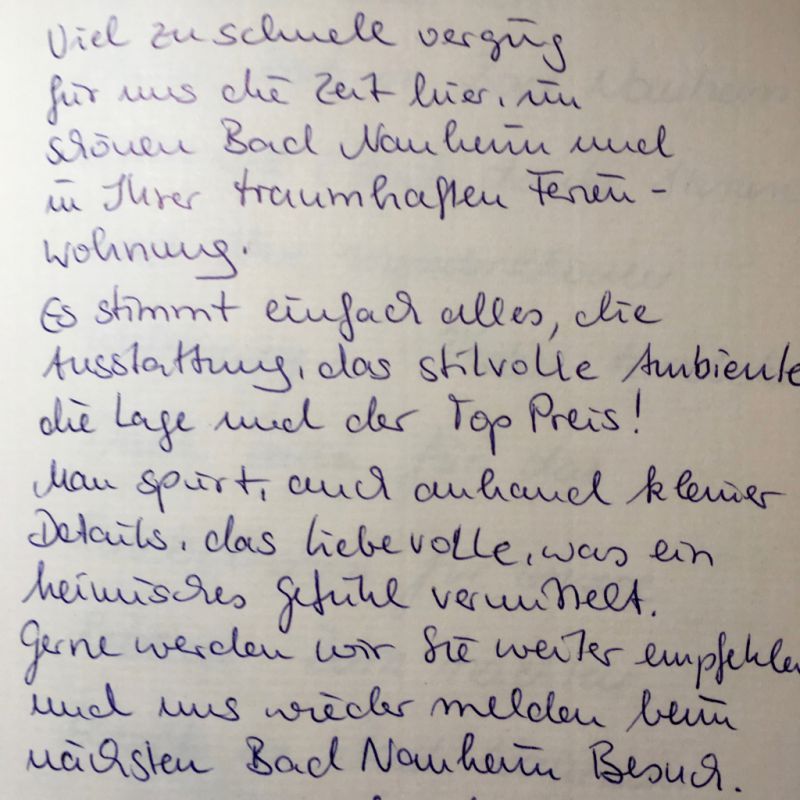 Viel zu schnell verging
für uns die Zeit hier, im
schönen Bad Nauheim und
in Ihrer traumhaften Ferien-
wohnung.
Es stimmt einfach alles, die
Ausstattung, das stilvolle Ambiente
die Lage und der Top Preis!
Man spürt, auch anhand kleiner
Details, das liebevolle, was ein
heimisches Gefühl vermittelt.
Gerne werden wir Sie weiter empfehlen
und uns wieder melden beim
nächsten Bad Nauheim Besuch.